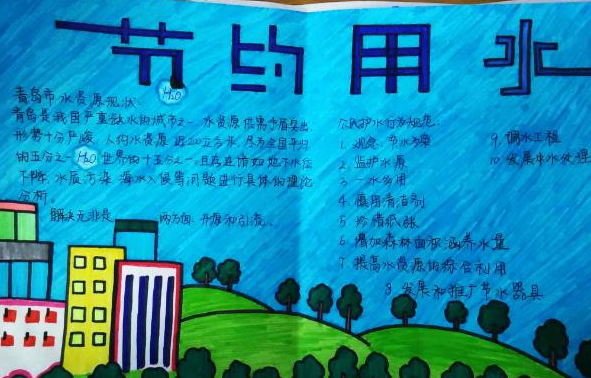 节约用水
青岛市水资源现状:
H₂O
青岛是我国严重缺水的城市之一,水资源供需矛盾突出,
形势十分严峻,人均水资源 200立方米,仅为全国平均
的五分之一,H₂O世界的十五分之一,且存在诸如地下水位
下降,水质污染,海水入侵等问题进行具体的理论
分析。
解决无非是 两方面:开源和引流。
个人护水行为规范:
1. 观念,节水
2. 监护水源
3. 一水多用
4. 慎用清洁剂
5. 珍惜纸张
6. 增加森林面积涵养水量
7. 提高水资源的综合利用
8. 发展和推广节水器具
9. 调水工程
10. 发展中水处理